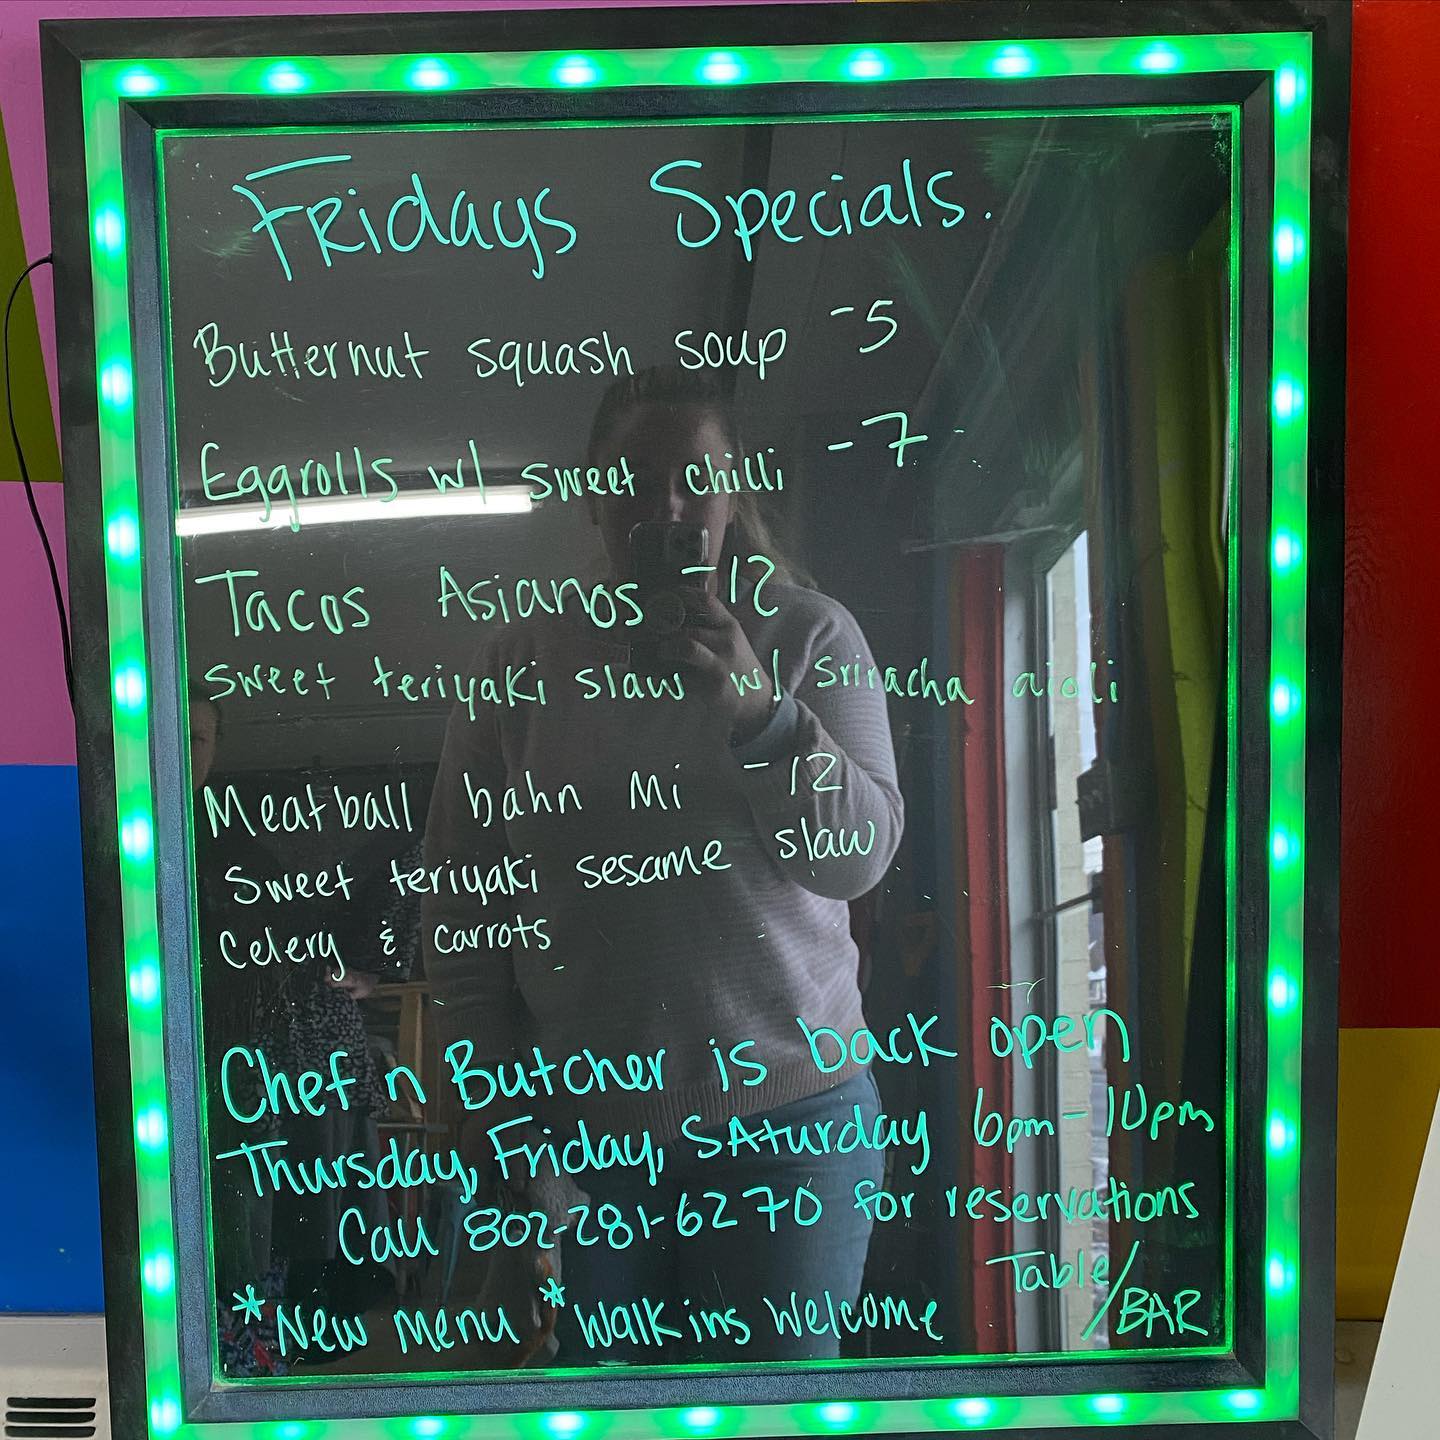 Fridays Specials.
Butternut squash soup -5
Eggrolls w/ sweet chilli -7
Tacos Asianos -12
sweet teriyaki slaw w/ sriracha aioli
Meatball bahn Mi -12
Sweet teriyaki sesame slaw
Celery & carrots
Chef n Butcher is back open
Thursday, Friday, SAturday 6pm-10pm
Call 802-281-6270 for reservations
Table/BAR
*New Menu *Walk ins Welcome